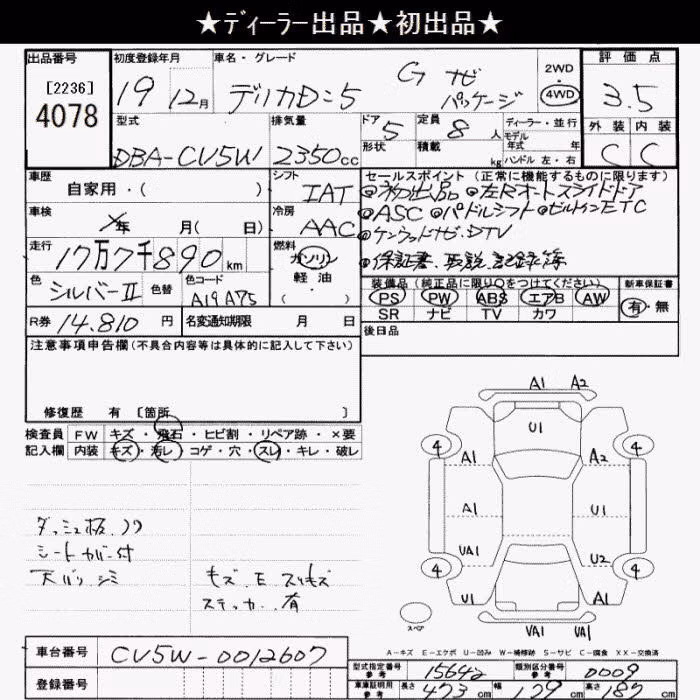 ★ディーラー出品★初出品★
出品番号 [2236] 4078
初度登録年月 19年 12月
車名・グレード デリカD:5 G ナビ パッケージ
2WD・4WD
評価点 3.5
外装 C 内装 C
型式 DBA-CV5W
排気量 2350cc
ドア 5 形状
定員 8人 積載 kg
ディーラー・並行
モデル年式 年式
ハンドル 左・右
車歴 自家用・( )
シフト IAT
セールスポイント (正常に機能するものに限ります)
◎初出品 ◎左Rオートスライドドア
◎ASC ◎パドルシフト ◎ビルトインETC
◎ケンウッドナビ、DTV
◎保証書、取説、記録簿
車検 年 月( 日)
冷房 AAC
走行 17万7千890km
燃料 ガソリン 軽油 ( ・ )
色 シルバーⅡ 色替
色コード A19 A75
装備品 (純正品に限り○をつけてください)
PS PW ABS エアB AW
SR ナビ TV カワ
新車保証書 有・無
R券 14.810円
名変通知期限 月 日
後日品
注意事項申告欄 (不具合内容等は具体的に記入して下さい)
修復歴 有 [箇所 ]
検査員記入欄
FW キズ・飛石・ヒビ割・リペア跡・×要
内装 キズ・汚レ・コゲ・穴・スレ・キレ・破レ
シートカバー付
天バリ、シミ
キズ、E、スリキズ
ステッカー、有
A1 A2
U1
4 4
A1 A2
A1 U1
UA1 U2
4 4
U1 A1
スペア
UA1 UA1
A-キズ E-エクボ U-凹み W-補修跡 S-サビ C-腐食 XX-交換済
車台番号 CV5W-0012607
登録番号
型式指定番号 参考 15642
類別区分番号 参考 0009
車庫証明用 参考 長さ 473cm 幅 179cm 高さ 187cm